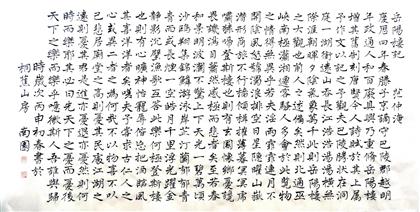 岳陽樓記 范仲淹
慶曆四年春滕子京謫守巴陵郡越明
年政通人和百廢具興乃重修岳陽樓
增其舊制刻唐賢今人詩賦於其上屬
予作文以記之予觀夫巴陵勝狀在洞
庭一湖銜遠山吞長江浩浩湯湯橫無
際涯朝暉夕陰氣象萬千此則岳陽樓
之大觀也前人之述備矣然則北通巫
峽南極瀟湘遷客騷人多會於此覽物
之情得無異乎若夫霪雨霏霏連月不
開陰風怒號濁浪排空日星隱曜山嶽
潛形商旅不行檣傾楫摧薄暮冥冥虎
嘯猿啼登斯樓也則有去國懷鄉憂讒
畏譏滿目蕭然感極而悲者矣至若春
和景明波瀾不驚上下天光一碧萬頃
沙鷗翔集錦鱗游泳岸芷汀蘭郁郁青
青而或長煙一空皓月千里浮光躍金
靜影沉璧漁歌互答此樂何極登斯樓
也則有心曠神怡寵辱偕忘把酒臨風
其喜洋洋者矣嗟夫予嘗求古仁人之
心或異二者之為何哉不以物喜不以
己悲居廟堂之高則憂其民處江湖之
遠則憂其君是進亦憂退亦憂然則何
時而樂耶其必曰先天下之憂而憂後
天下之樂而樂乎噫微斯人吾誰與歸
時歲次丙申初春書於
桐蕉山房 南園